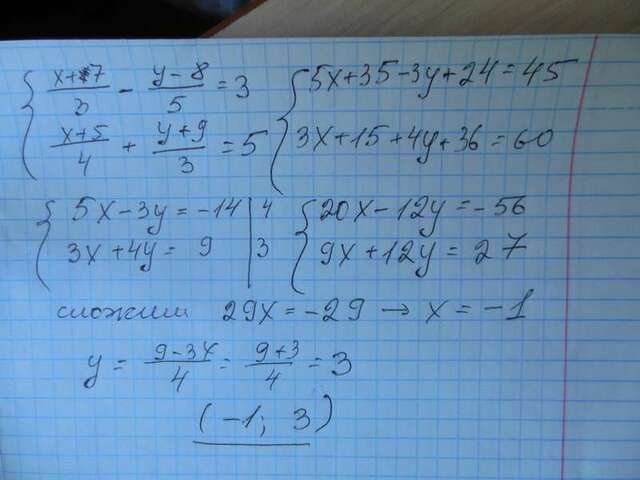 (x+7)/3 - (y-8)/5 = 3
(x+5)/4 + (y+9)/3 = 5
5x+35-3y+24=45
3x+15+4y+36=60
5x-3y=-14 | 4
3x+4y= 9 | 3
20x-12y=-56
9x+12y=27
сложим 29x=-29 → x=-1
y = (9-3x)/4 = (9+3)/4 = 3
(-1; 3)